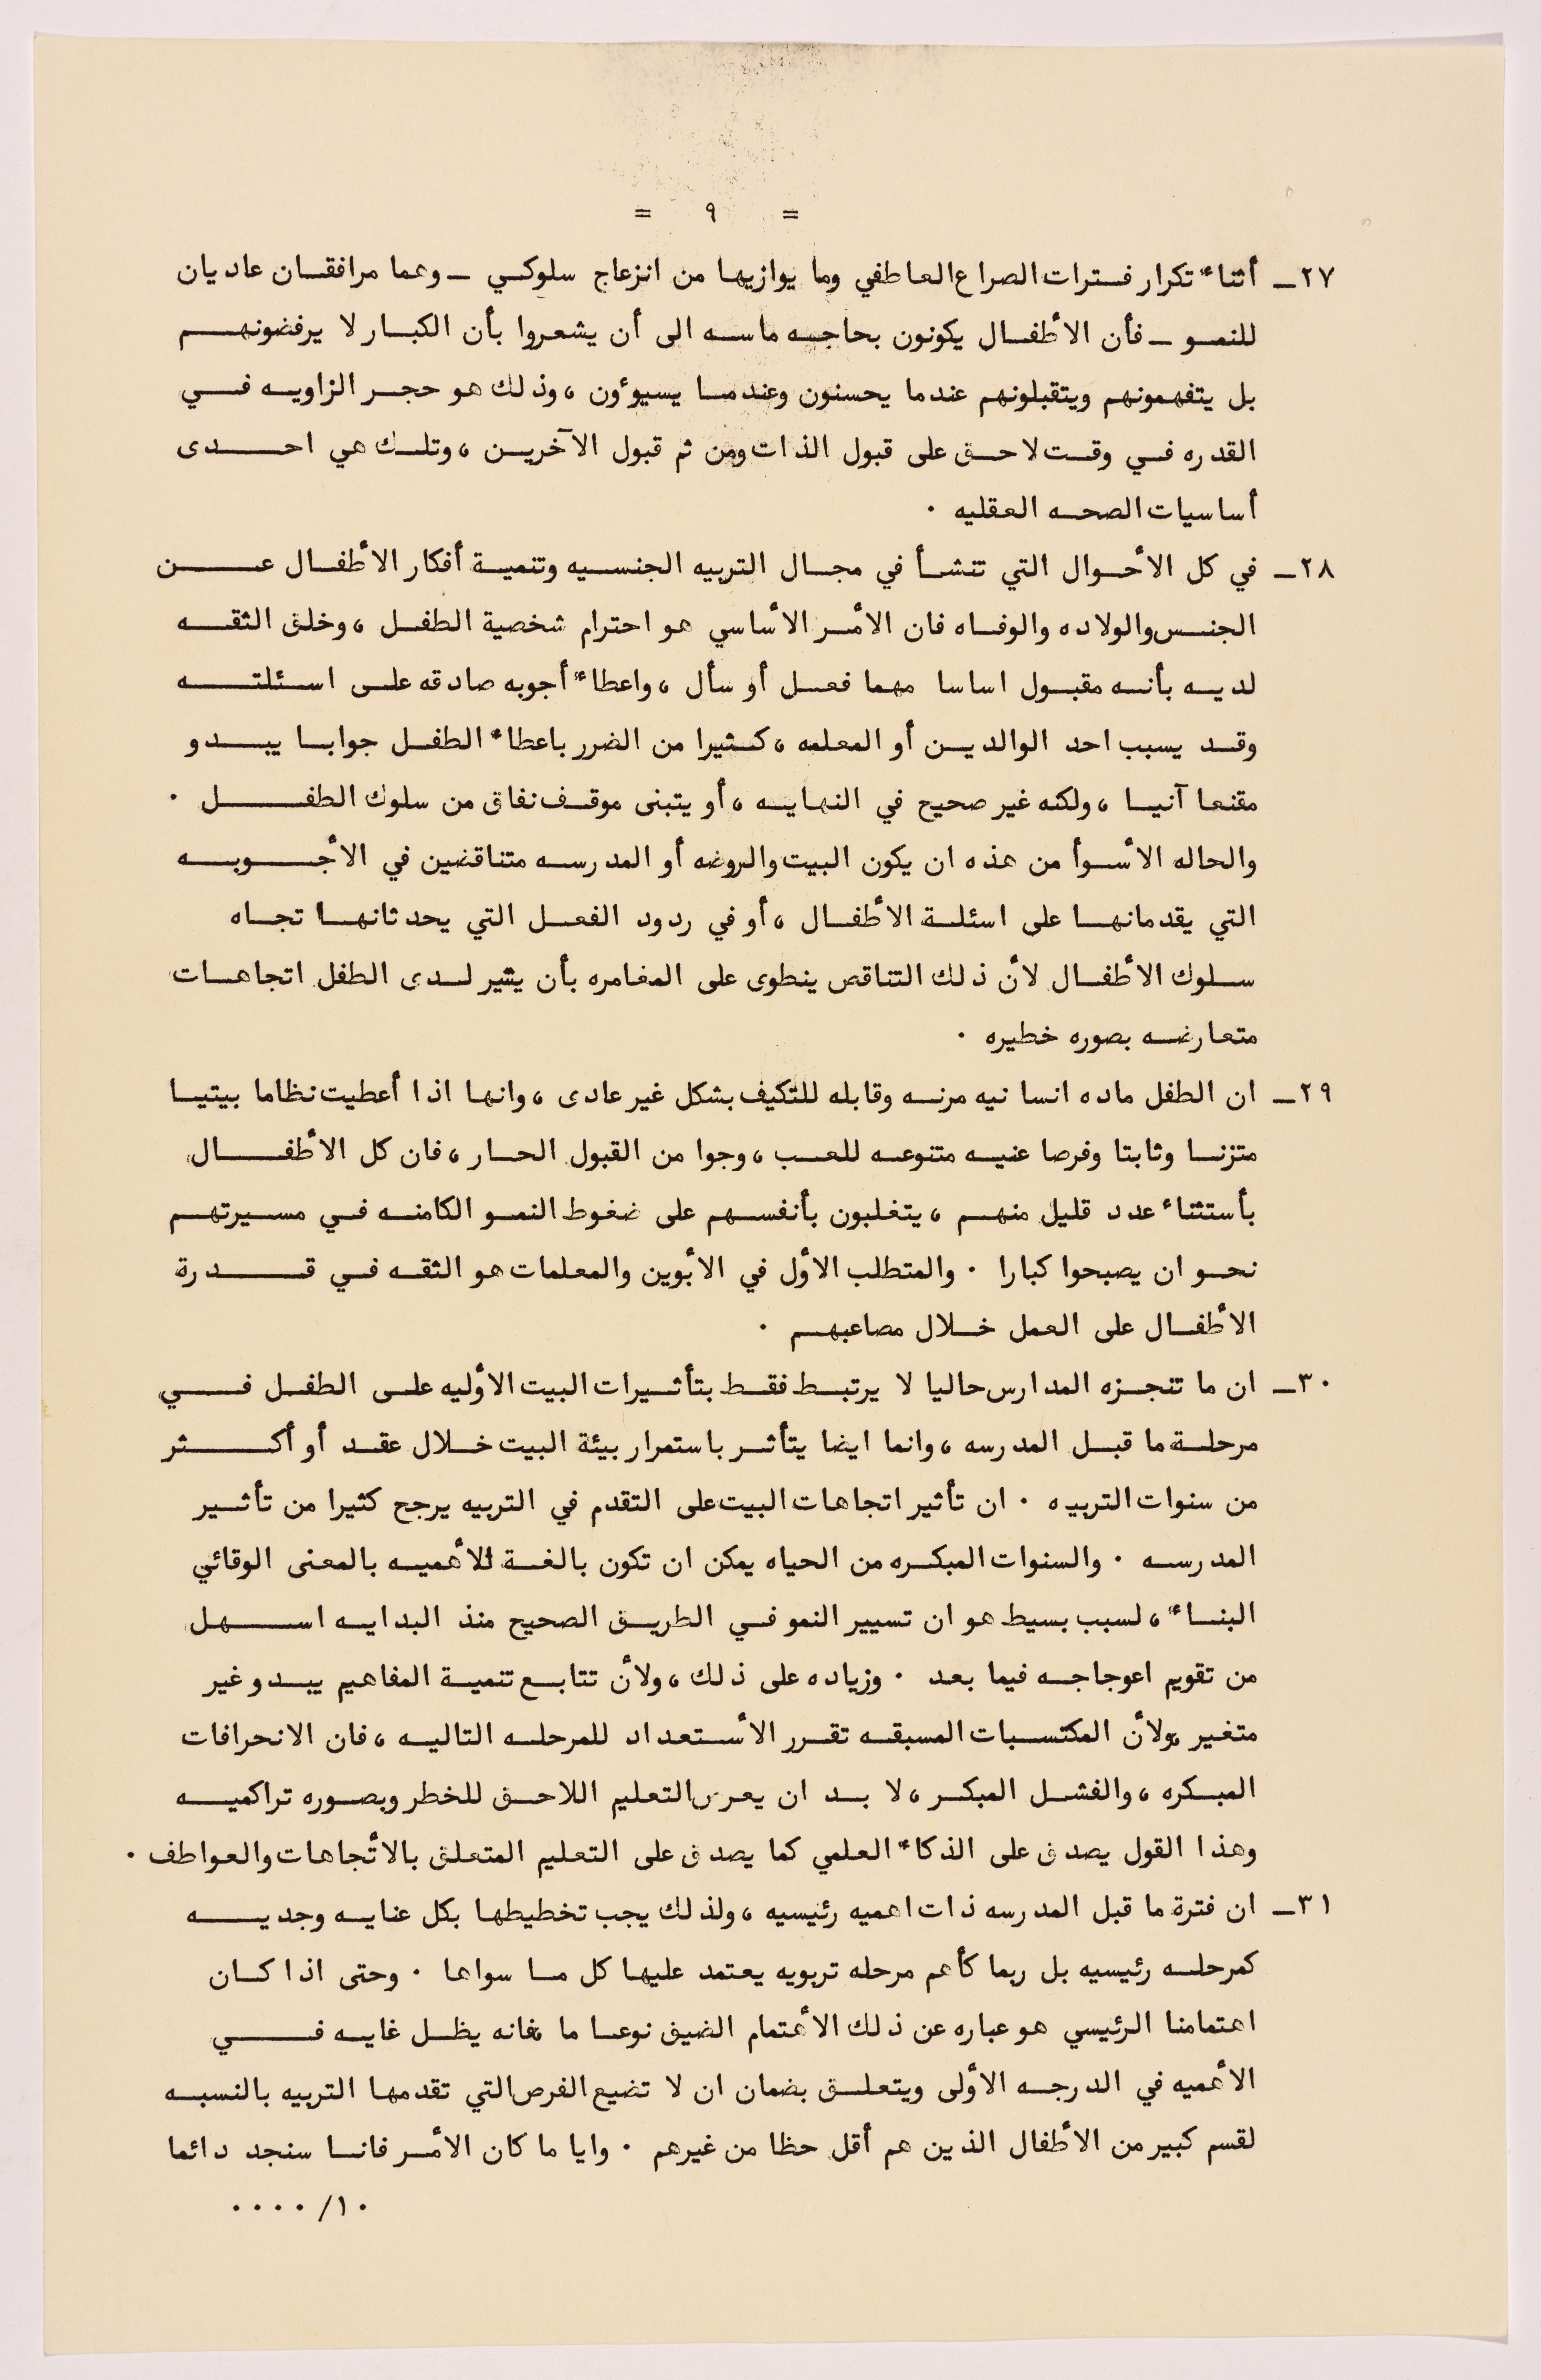 = ٩ =
٢٧ــ أثناء تكرار فترات الصراع العاطفي وما يوازيها من انزعاج سلوكي ــ وهما مرافقان عاديان
للنمو ــ فأن الأطفال يكونون بحاجه ماسه الى أن يشعروا بأن الكبار لا يرفضونهم
بل يتفهمونهم ويتقبلونهم عندما يحسنون وعندما يسيوءون ، وذلك هو حجر الزاويه في
القدره في وقت لاحق على قبول الذات ومن ثم قبول الآخرين ، وتلك هي احدى
أساسيات الصحه العقليه ٠
٢٨ــ في كل الأحوال التي تنشأ في مجال التربيه الجنسيه وتنمية أفكار الأطفال عن
الجنس والولاده والوفاه فان الأمر الأساسي هو احترام شخصية الطفل ، وخلق الثقه
لديه بأنه مقبول اساسا مهما فعل أو سأل ، واعطاء أجوبه صادقه على اسئلته
وقد يسبب احد الوالدين أو المعلمه ، كثيرا من الضرر باعطاء الطفل جوابا يبدو
مقنعا آنيا ، ولكنه غير صحيح في النهايه ، أو يتبنى موقف نفاق من سلوك الطفل ٠
والحاله الأسوأ من هذه ان يكون البيت والروضه أو المدرسه متناقضين في الأجوبه
التي يقدمانها على اسئلة الأطفال ، أو في ردود الفعل التي يحدثانها تجاه
سلوك الأطفال لأن ذلك التناقص ينطوى على المغامره بأن يثير لدى الطفل اتجاهات
متعارضه بصوره خطيره ٠
٢٩ــ ان الطفل ماده انسانيه مرنه وقابله للتكيف بشكل غير عادى ، وانها اذا أعطيت نظاما بيتيا
متزنا وثابتا وفرصا غنيه متنوعه للعب ، وجوا من القبول الحار ، فان كل الأطفال
بأستثناء عدد قليل منهم ، يتغلبون بأنفسهم على ضغوط النمو الكامنه في مسيرتهم
نحو ان يصبحوا كبارا ٠ والمتطلب الأول في الأبوين والمعلمات هو الثقه في قدرة
الأطفال على العمل خلال مصاعبهم ٠
٣٠ــ ان ما تنجزه المدارس حاليا لا يرتبط فقط بتأثيرات البيت الأوليه على الطفل في
مرحلة ما قبل المدرسه ، وانما ايضا يتأثر باستمرار بيئة البيت خلال عقد أو أكثر
من سنوات التربيه ٠ ان تأثير اتجاهات البيت على التقدم في التربيه يرجح كثيرا من تأثير
المدرسه ٠ والسنوات المبكره من الحياه يمكن ان تكون بالغة الأهميه بالمعنى الوقائي
البناء ، لسبب بسيط هو ان تسيير النمو في الطريق الصحيح منذ البدايه اسهل
من تقويم اعوجاجه فيما بعد ٠ وزياده على ذلك ، ولأن تتابع تنمية المفاهيم يبدو غير
متغير ،ولأن المكتسبات المسبقه تقرر الأستعداد للمرحله التاليه ، فان الانحرافات
المبكره ، والفشل المبكر ، لا بد ان يعرض التعليم اللاحق للخطر وبصوره تراكميه
وهذا القول يصدق على الذكاء العلمي كما يصدق على التعليم المتعلق بالأتجاهات والعواطف ٠
٣١ــ ان فترة ما قبل المدرسه ذات اهميه رئيسيه ، ولذلك يجب تخطيطها بكل عنايه وجديه
كمرحله رئيسيه بل ربما كأهم مرحله تربويه يعتمد عليها كل ما سواها ٠ وحتى اذا كان
اهتمامنا الرئيسي هو عباره عن ذلك الأهتمام الضيق نوعا ما ،فانه يظل غايه في
الأهميه في الدرجه الأولى ويتعلق بضمان ان لا تضيع الفرص التي تقدمها التربيه بالنسبه
لقسم كبير من الأطفال الذين هم أقل حظا من غيرهم ٠ وايا ما كان الأمر فانا سنجد دائما
١٠/ ٠٠٠٠